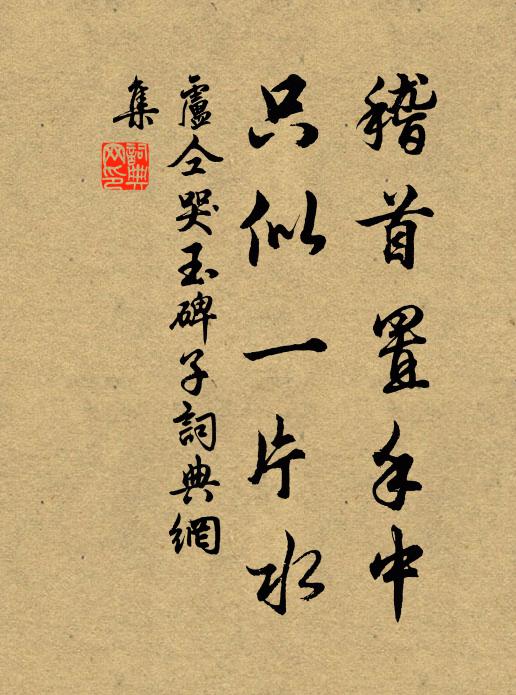 稽首置手中
只似一片水
盧仝哭玉碑子詞典網
集
詞典
网印